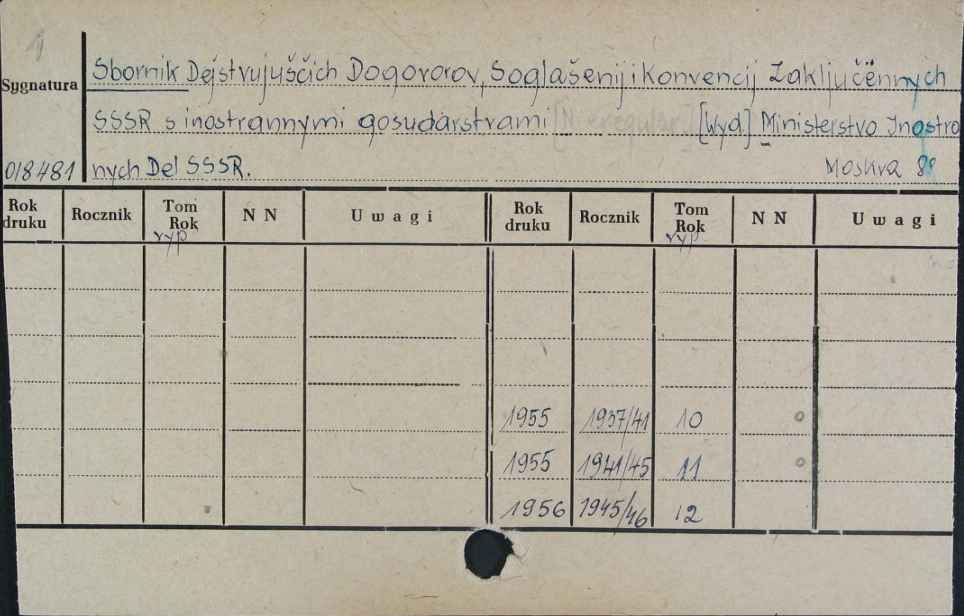 Sygnatura
Sbornik Dejstvujuščich Dogovorov, Soglašenij i Konvencij Zaključënnych
SSSR s inostrannymi gosudarstvami [Neregular.] [Wyd.] Ministerstvo Inostra
018481 nych Del SSSR. Moskva 88
Rok druku Rocznik Tom Rok NN Uwagi Rok druku Rocznik Tom Rok NN Uwagi
vyp vyp
1955 1937/41 10
1955 1941/45 11
1956 1945/46 12